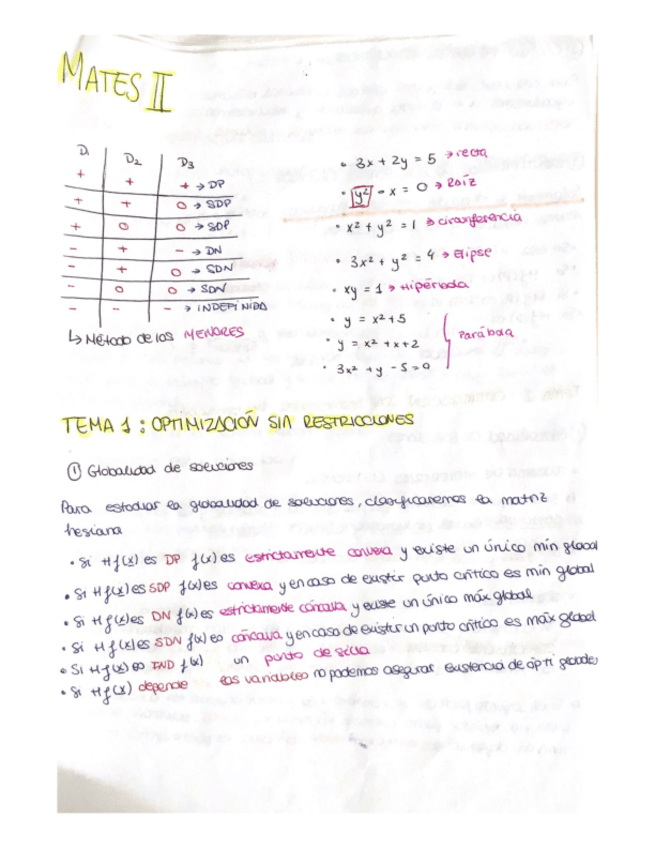 MATES II
D₁ D₂ D₃
+ + + → DP
+ + 0 → SDP
+ 0 0 → SDP
- + - → DN
- + 0 → SDN
- 0 0 → SDN
- - - → INDEFINIDA
↳ Método de los MENORES
• 3x + 2y = 5 → recta
• y² - x = 0 → Raíz
• x² + y² = 1 → circunferencia
• 3x² + y² = 4 → Elipse
• xy = 1 → Hipérbola
• y = x² + 5
• y = x² + x + 2
• 3x² + y - 5 = 0
Parábola
TEMA 1 : OPTIMIZACIÓN SIN RESTRICCIONES
① Globalidad de soluciones
Para estudiar la globalidad de soluciones, clasificaremos la matriz
hesiana
• Si Hf(x) es DP f(x) es estrictamente convexa y existe un único mín global
• Si Hf(x) es SDP f(x) es convexa y en caso de existir punto crítico es mín global
• Si Hf(x) es DN f(x) es estrictamente cóncava y existe un único máx global
• Si Hf(x) es SDN f(x) es cóncava y en caso de existir un punto crítico es máx global
• Si Hf(x) es IND f(x) un punto de silla
• Si Hf(x) depende las variables no podemos asegurar existencia de ópti globales